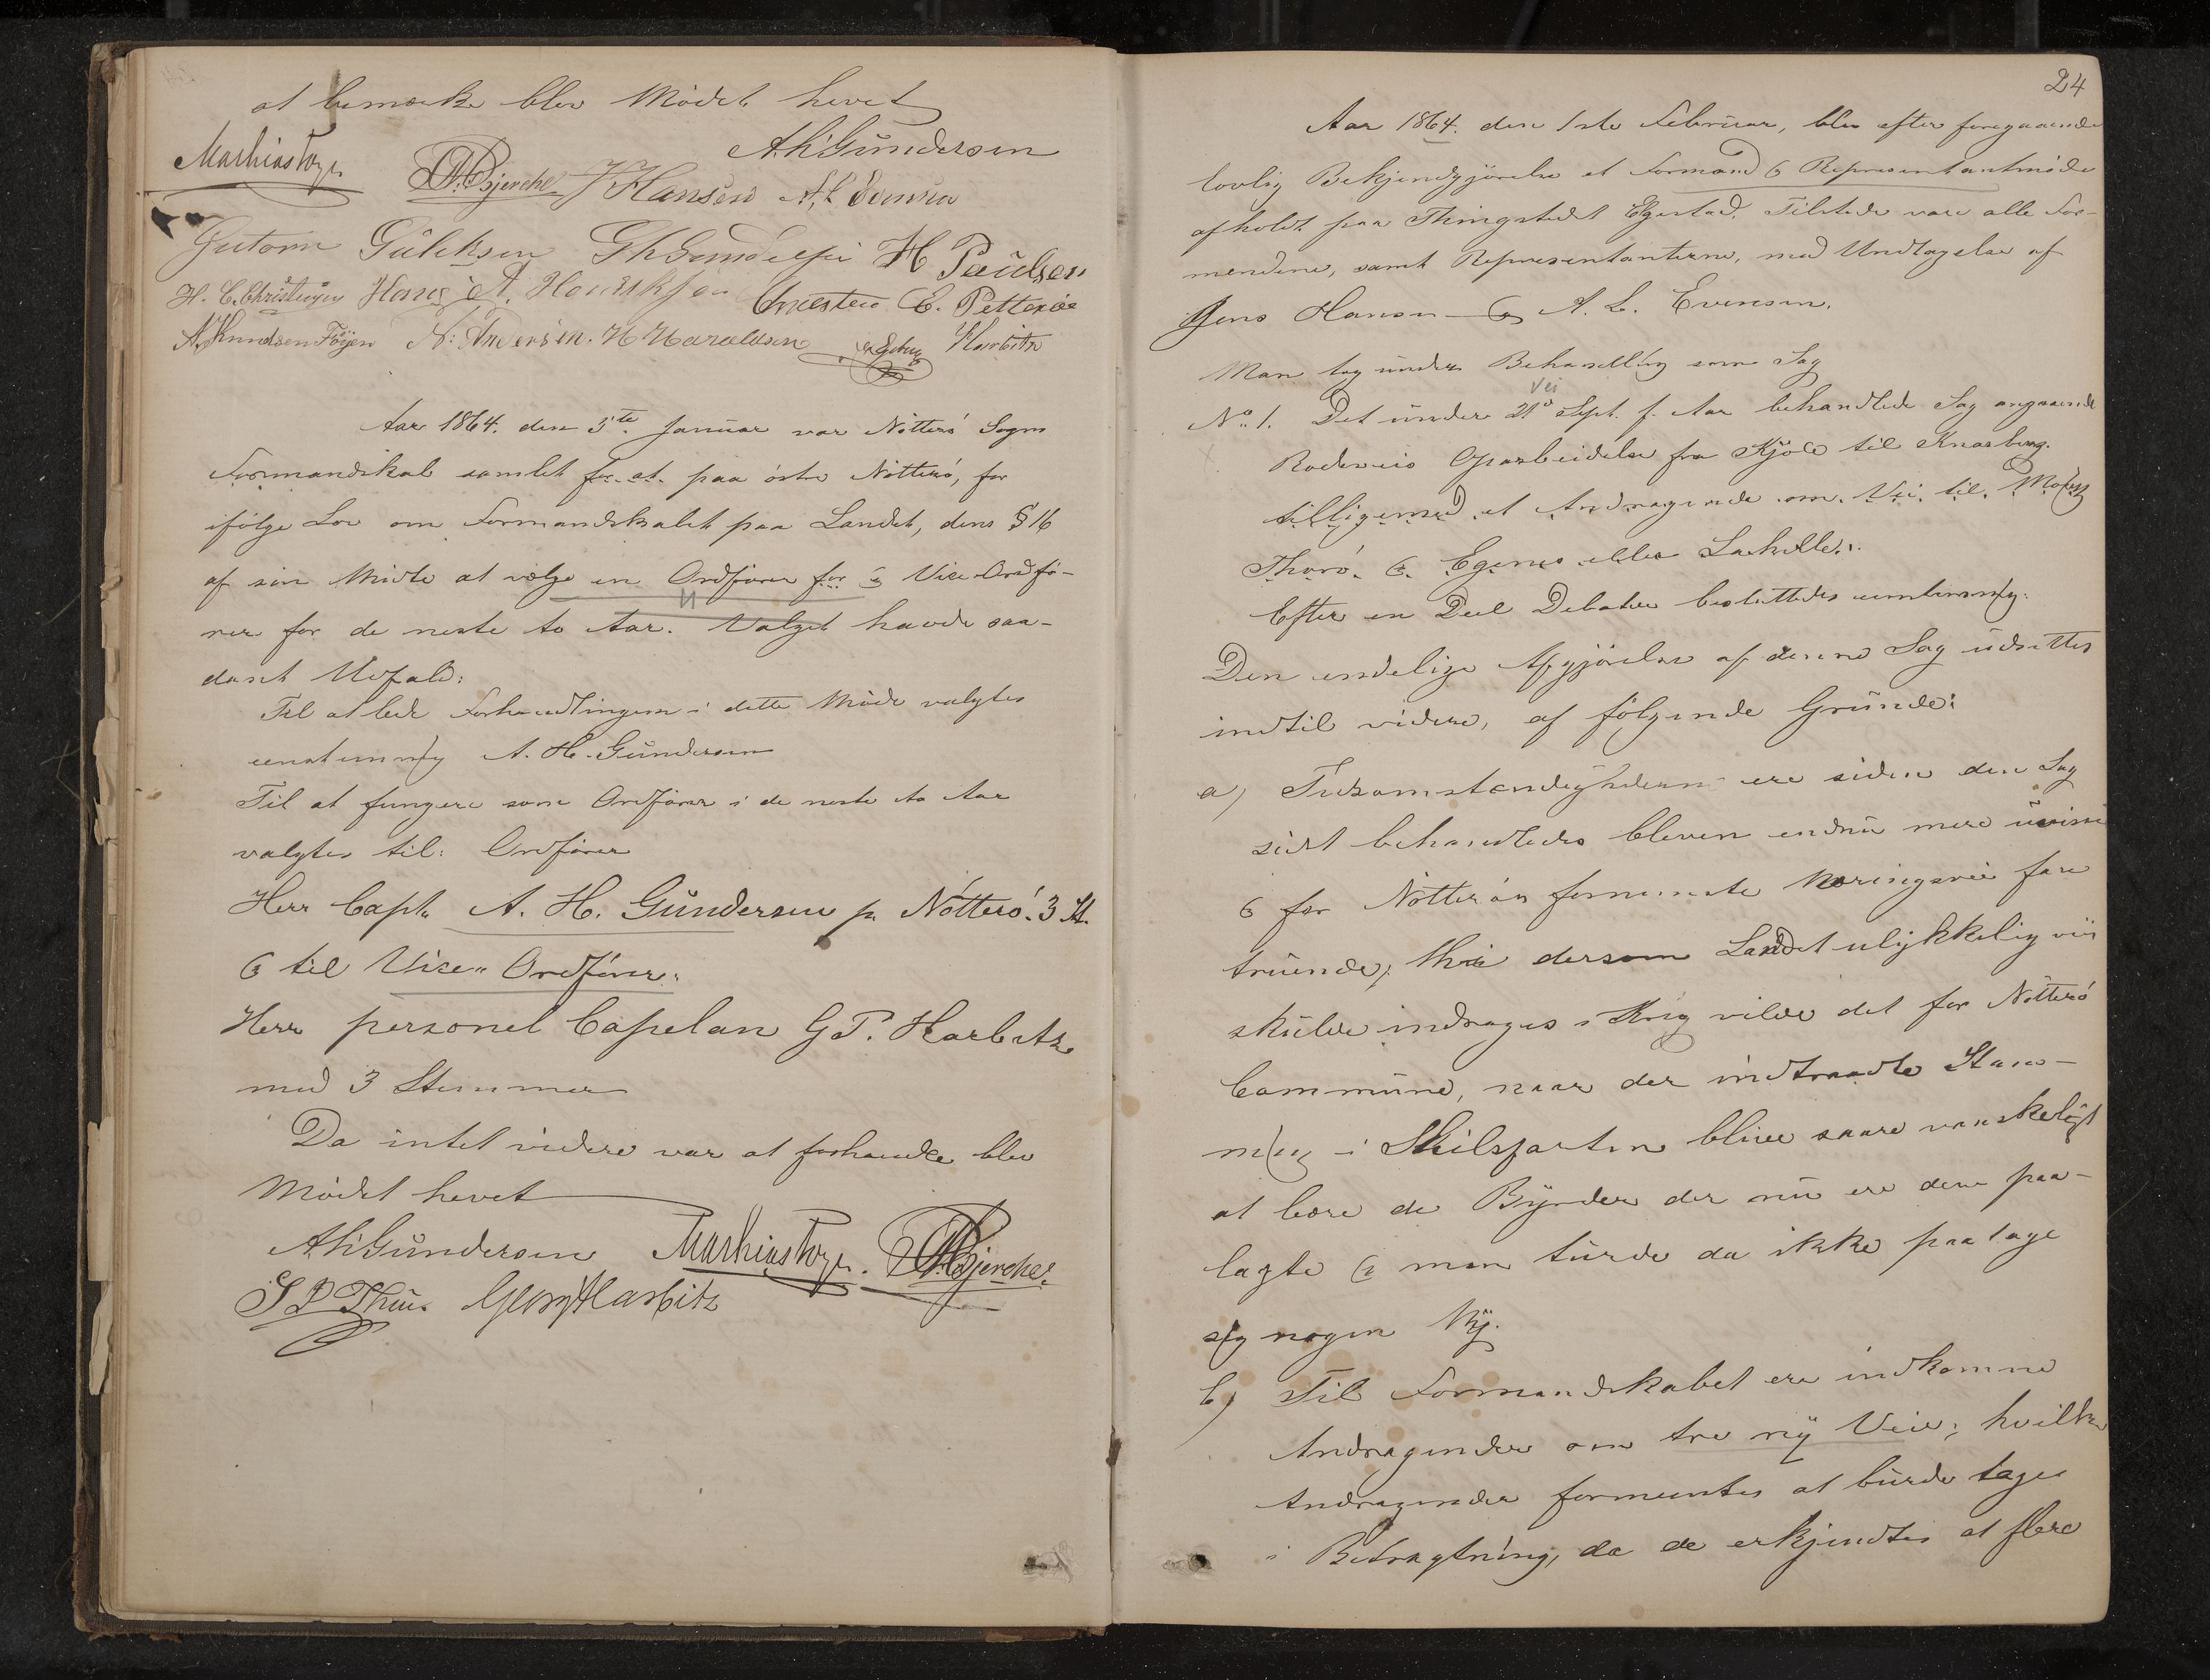 at bemærke blev Mødet hevet
A. H. Gundersen
Mathias Foyn
Bjerche J Hansen A. L. Evensen
Gutorm Gulliksen H Paulsen
H. C. Christensen Hans A. Henriksen Ernesten E. Petterøe
A. Knudsen Föyen N: Andersen. H Haraldsen Harbitz
Aar 1864. den 3te Januar var Nötterö Sogns
Formandskab samlet for at. paa östre Nötterö, for
ifölge Lov om Formandskabet paa Landet, dens § 16
af sin Midte at vælge en Ordförer for & Vice-Ordfö-
rer for de neste to Aar. Valget havde saa-
dant Udfald:
Til at lede Forhandlingen i dette Möde valgtes
eenstemmig A. H. Gundersen
Til at fungere som Ordförer i de neste to Aar
valgtes til: Ordförer
Herr Capt. A. H. Gundersen p. Nötterö. 3 St.
& til Vice-Ordförer:
Herr personel Capelan G. P. Harbitz
med 3 Stemmer
Da intet videre var at forhandle blev
Mödet hevet
A H Gundersen Mathias Foyn. Bjerche.
S P Thue Georg Harbitz
24
Aar 1864. den 1ste Februar, blev efter foregaaende
lovlig Bekjendgjörelse et Formand & Representantmöde
afholdt paa Thingstedet Elgestad. Tilstede vare alle For-
mendene, samt Representanterne, med Undtagelse af
Jens Hansen & A. L. Evensen.
Man tog under Behandling som Sag
Vei
No. 1. Det under 21de Sept. f. Aar behandlede Sag angaaende
Rodeveis Oparbeidelse fra Kjöle til Knarberg.
tilligemed et Andragende om. Vei til.
Thorö. & Egenes eller
Efter en Deel Debatter besluttedes eenstemmig:
Den endelige Afgjörelse af denne Sag udsettes
indtil videre, af fölgende Grunde:
a) Tidsomstændighederne ere siden den Sag
sidst behandledes bleven endnu mere uvisse
& for Nötteröes fornemste Næringsvei fare
truende; thi dersom Landet ulykkelig viis
skulde indrages i Krig vilde det for Nötterö
Commune, naar der indtraadte Stans-
ning i Skibsfarten blive saare vanskeligt
at bære de Byrder der nu ere dem paa-
lagte & man turde da ikke paatage
sig nogen Ny.
b) Til Formandskabet ere indkomne
Andragender om tre ny Veie; hvilke
Andragender formeentes at burde tages
i Betragtning, da de erkjendtes at flere